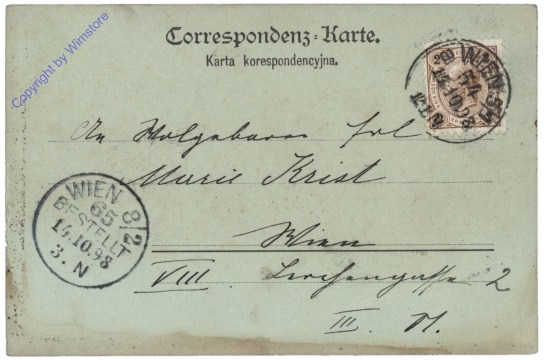 Copyright by Wimstore
Correspondenz-Karte.
Karta korespondencyjna.
WIEN
14.10.98
An Wolgeboren Frl
Marie Krist
Wien
VIII. Lerchengasse 2
III. Tl.
WIEN 8/2
65
BESTELLT
14.10.98
3. N